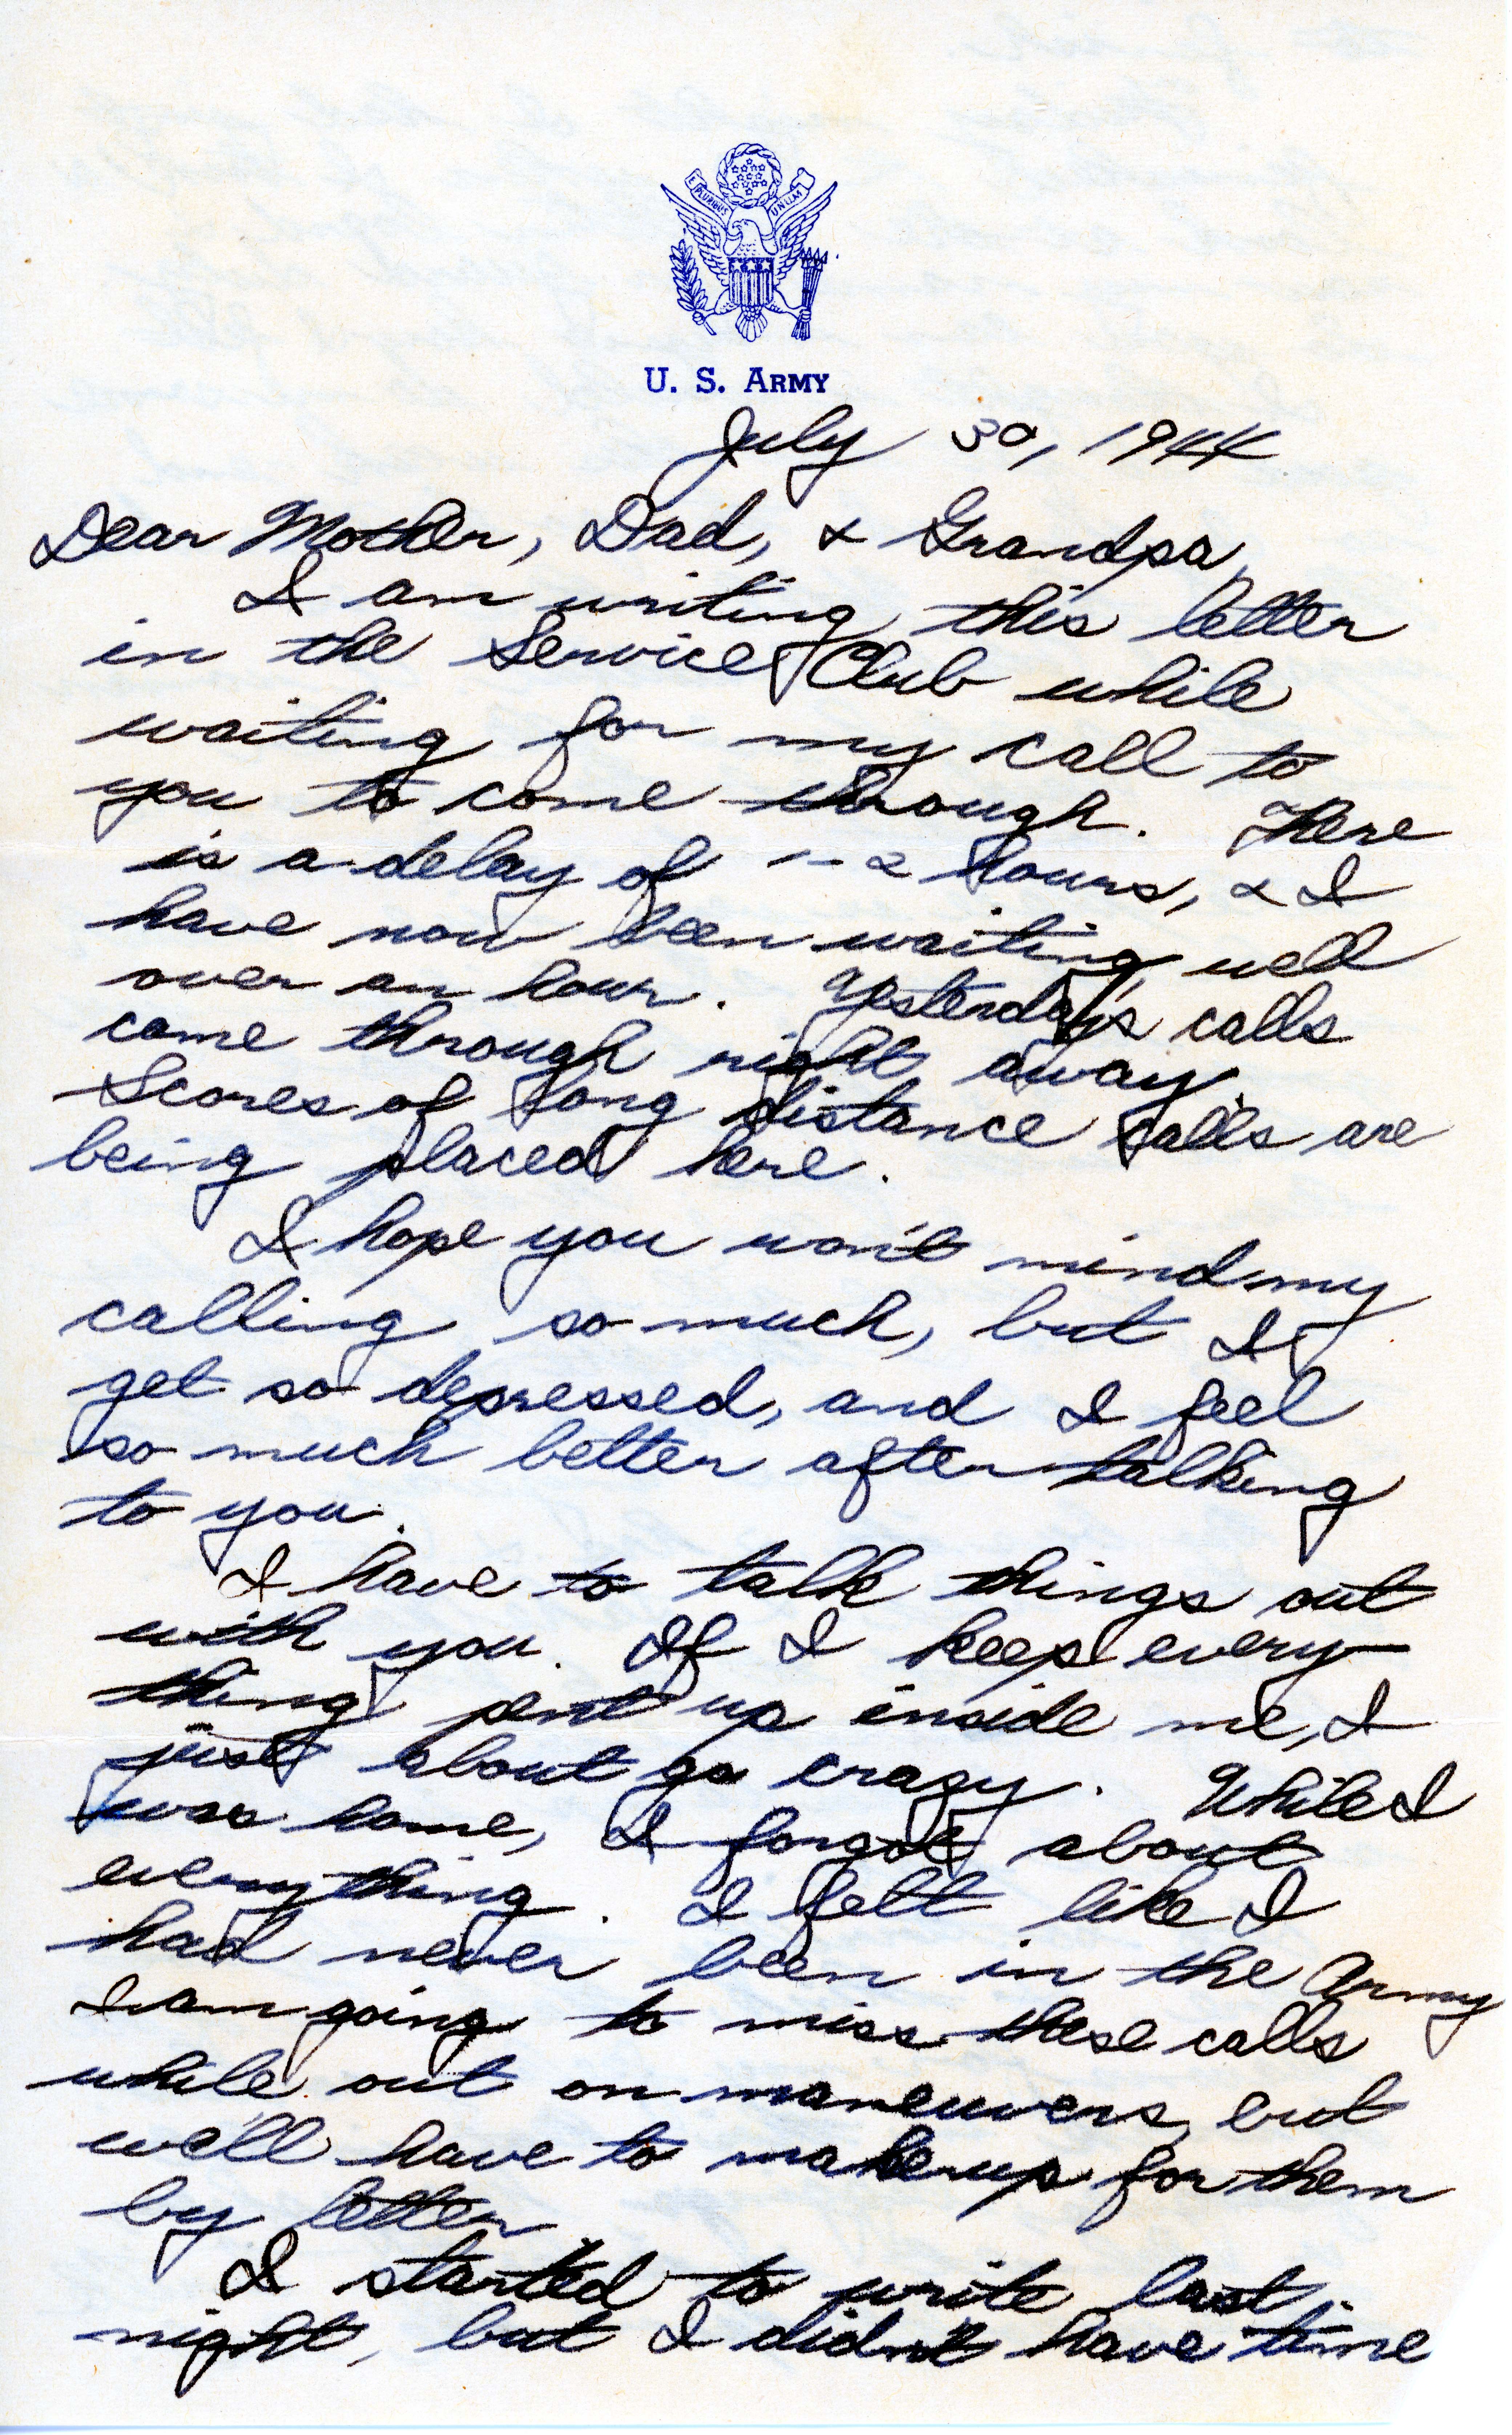 E PLURIBUS UNUM
U. S. ARMY
July 30, 1944
Dear Mother, Dad, & Grandpa,
I am writing this letter
in the Service Club while
waiting for my call to
you to come through. There
is a delay of 1-2 hours, & I
have now been waiting well
over an hour. Yesterday's calls
came through right away.
Scores of long distance calls are
being placed here.
I hope you won't mind my
calling so much, but I
get so depressed, and I feel
so much better after talking
to you.
I have to talk things out
with you. If I keep every-
thing pent up inside me, I
just about go crazy. While I
was home, I forgot about
everything. I felt like I
had never been in the Army
I am going to miss these calls
while out on maneuvers, but
we'll have to make up for them
by letter.
I started to write last
night, but I didn't have time